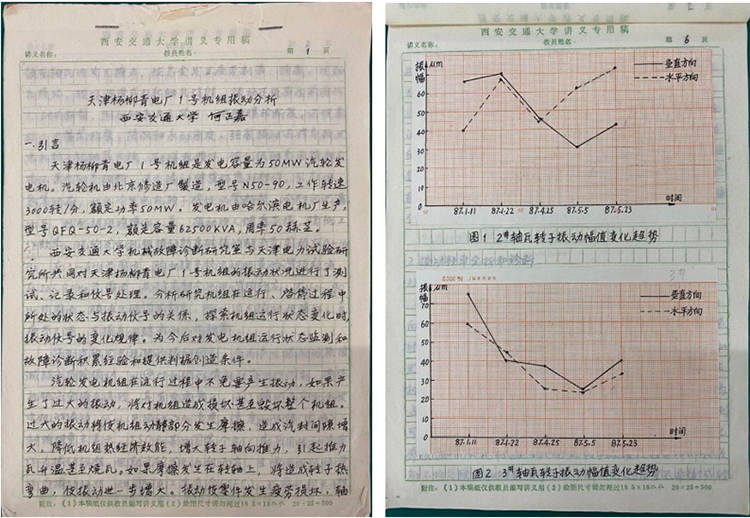 西安交通大学讲义专用稿
讲义名称: 教员姓名 第 1 页
天津杨柳青电厂1号机组振动分析
西安交通大学 何正嘉
一.引言
天津杨柳青电厂1号机组是发电容量为50MW汽轮发
电机。汽轮机由北京修造厂制造,型号N50-90,工作转速
3000转/分,额定功率50MW。发电机由哈尔滨电机厂生产,
型号QFQ-50-2,额定容量62500KVA,周率50赫芝。
西安交通大学机械故障诊断研究室与天津电力试验研
究所共同对天津杨柳青电厂1号机组的振动状况进行了测
试、记录和信号处理。分析研究机组在运行、启停过程中
所处的状态与振动信号的关系,探索机组运行状态变化时,
振动信号的变化规律。为今后对发电机组运行状态监测和
故障诊断积累经验和提供判据创造条件。
汽轮发电机组在运行过程中不免要产生振动,如果产
生了过大的振动,将对机组造成损坏甚至毁坏整个机组。
过大的振动将使机组动静部分发生摩擦,造成汽封间隙增
大,降低机组热经济效能,增大转子轴向推力,引起推力
瓦升温甚至烧瓦。如果摩擦发生在转轴上,将造成转子热
弯曲,使振动进一步增大。振动使零件发生疲劳损坏,轴
附注:(1)本稿纸仅供教员编写讲义用(2)绘图尺寸请勿超过18.5×18公分 20×25=500
西安交通大学讲义专用稿
讲义名称: 教员姓名 第 6 页
振幅 μm
垂直方向
水平方向
60
50
40
30
0
87.1.11 87.1.22 87.4.25 87.5.5 87.5.23
时间
图1 2#轴瓦转子振动幅值变化趋势
振幅 μm
垂直方向
水平方向
70
60
50
40
30
20
10
0
87.1.11 87.1.22 87.4.25 87.5.5 87.5.23
时间
图2 3#轴瓦转子振动幅值变化趋势
附注:(1)本稿纸仅供教员编写讲义用(2)绘图尺寸请勿超过18.5×18公分 20×25=500